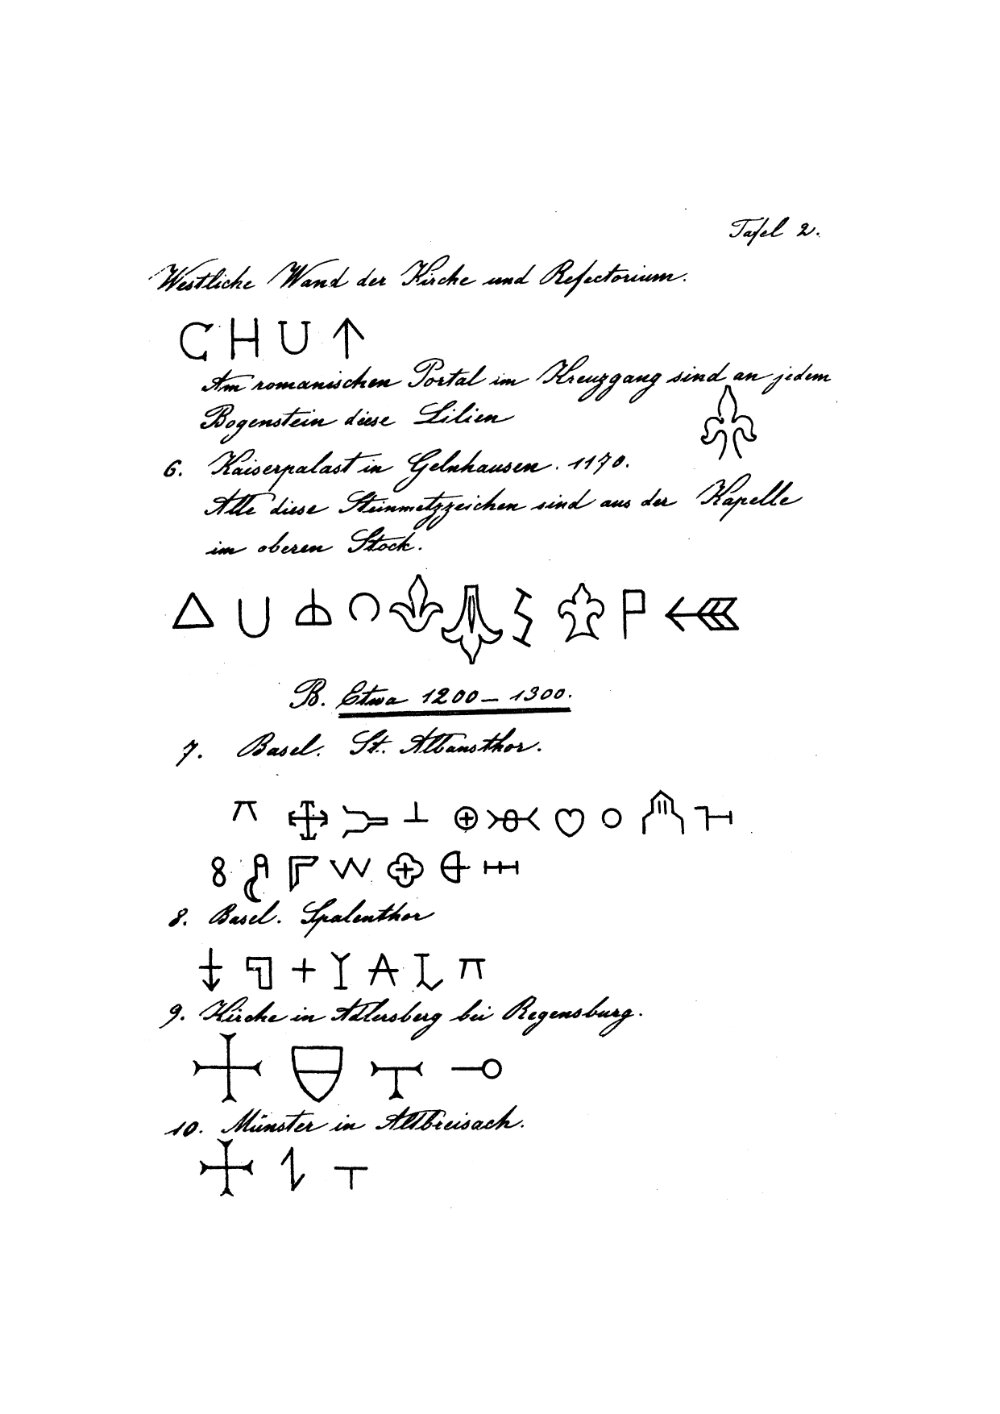 Tafel 2.
Westliche Wand der Kirche und Refectorium.
C H U ↑
Am romanischen Portal im Kreuzgang sind an jedem
Bogenstein diese Lilien
6. Kaiserpalast in Gelnhausen. 1170.
Alle diese Steinmetzzeichen sind aus der Kapelle
im oberen Stock.
B. Etwa 1200 – 1300.
7. Basel. St. Albansthor.
8. Basel. Spalenthor
9. Kirche in Adlersberg bei Regensburg.
10. Münster in Altbreisach.